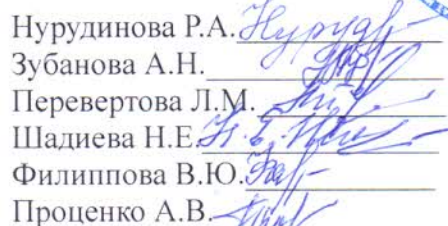 Нурудинова Р.А.
Зубанова А.Н.
Перевертова Л.М.
Шадиева Н.Е.
Филиппова В.Ю.
Проценко А.В.